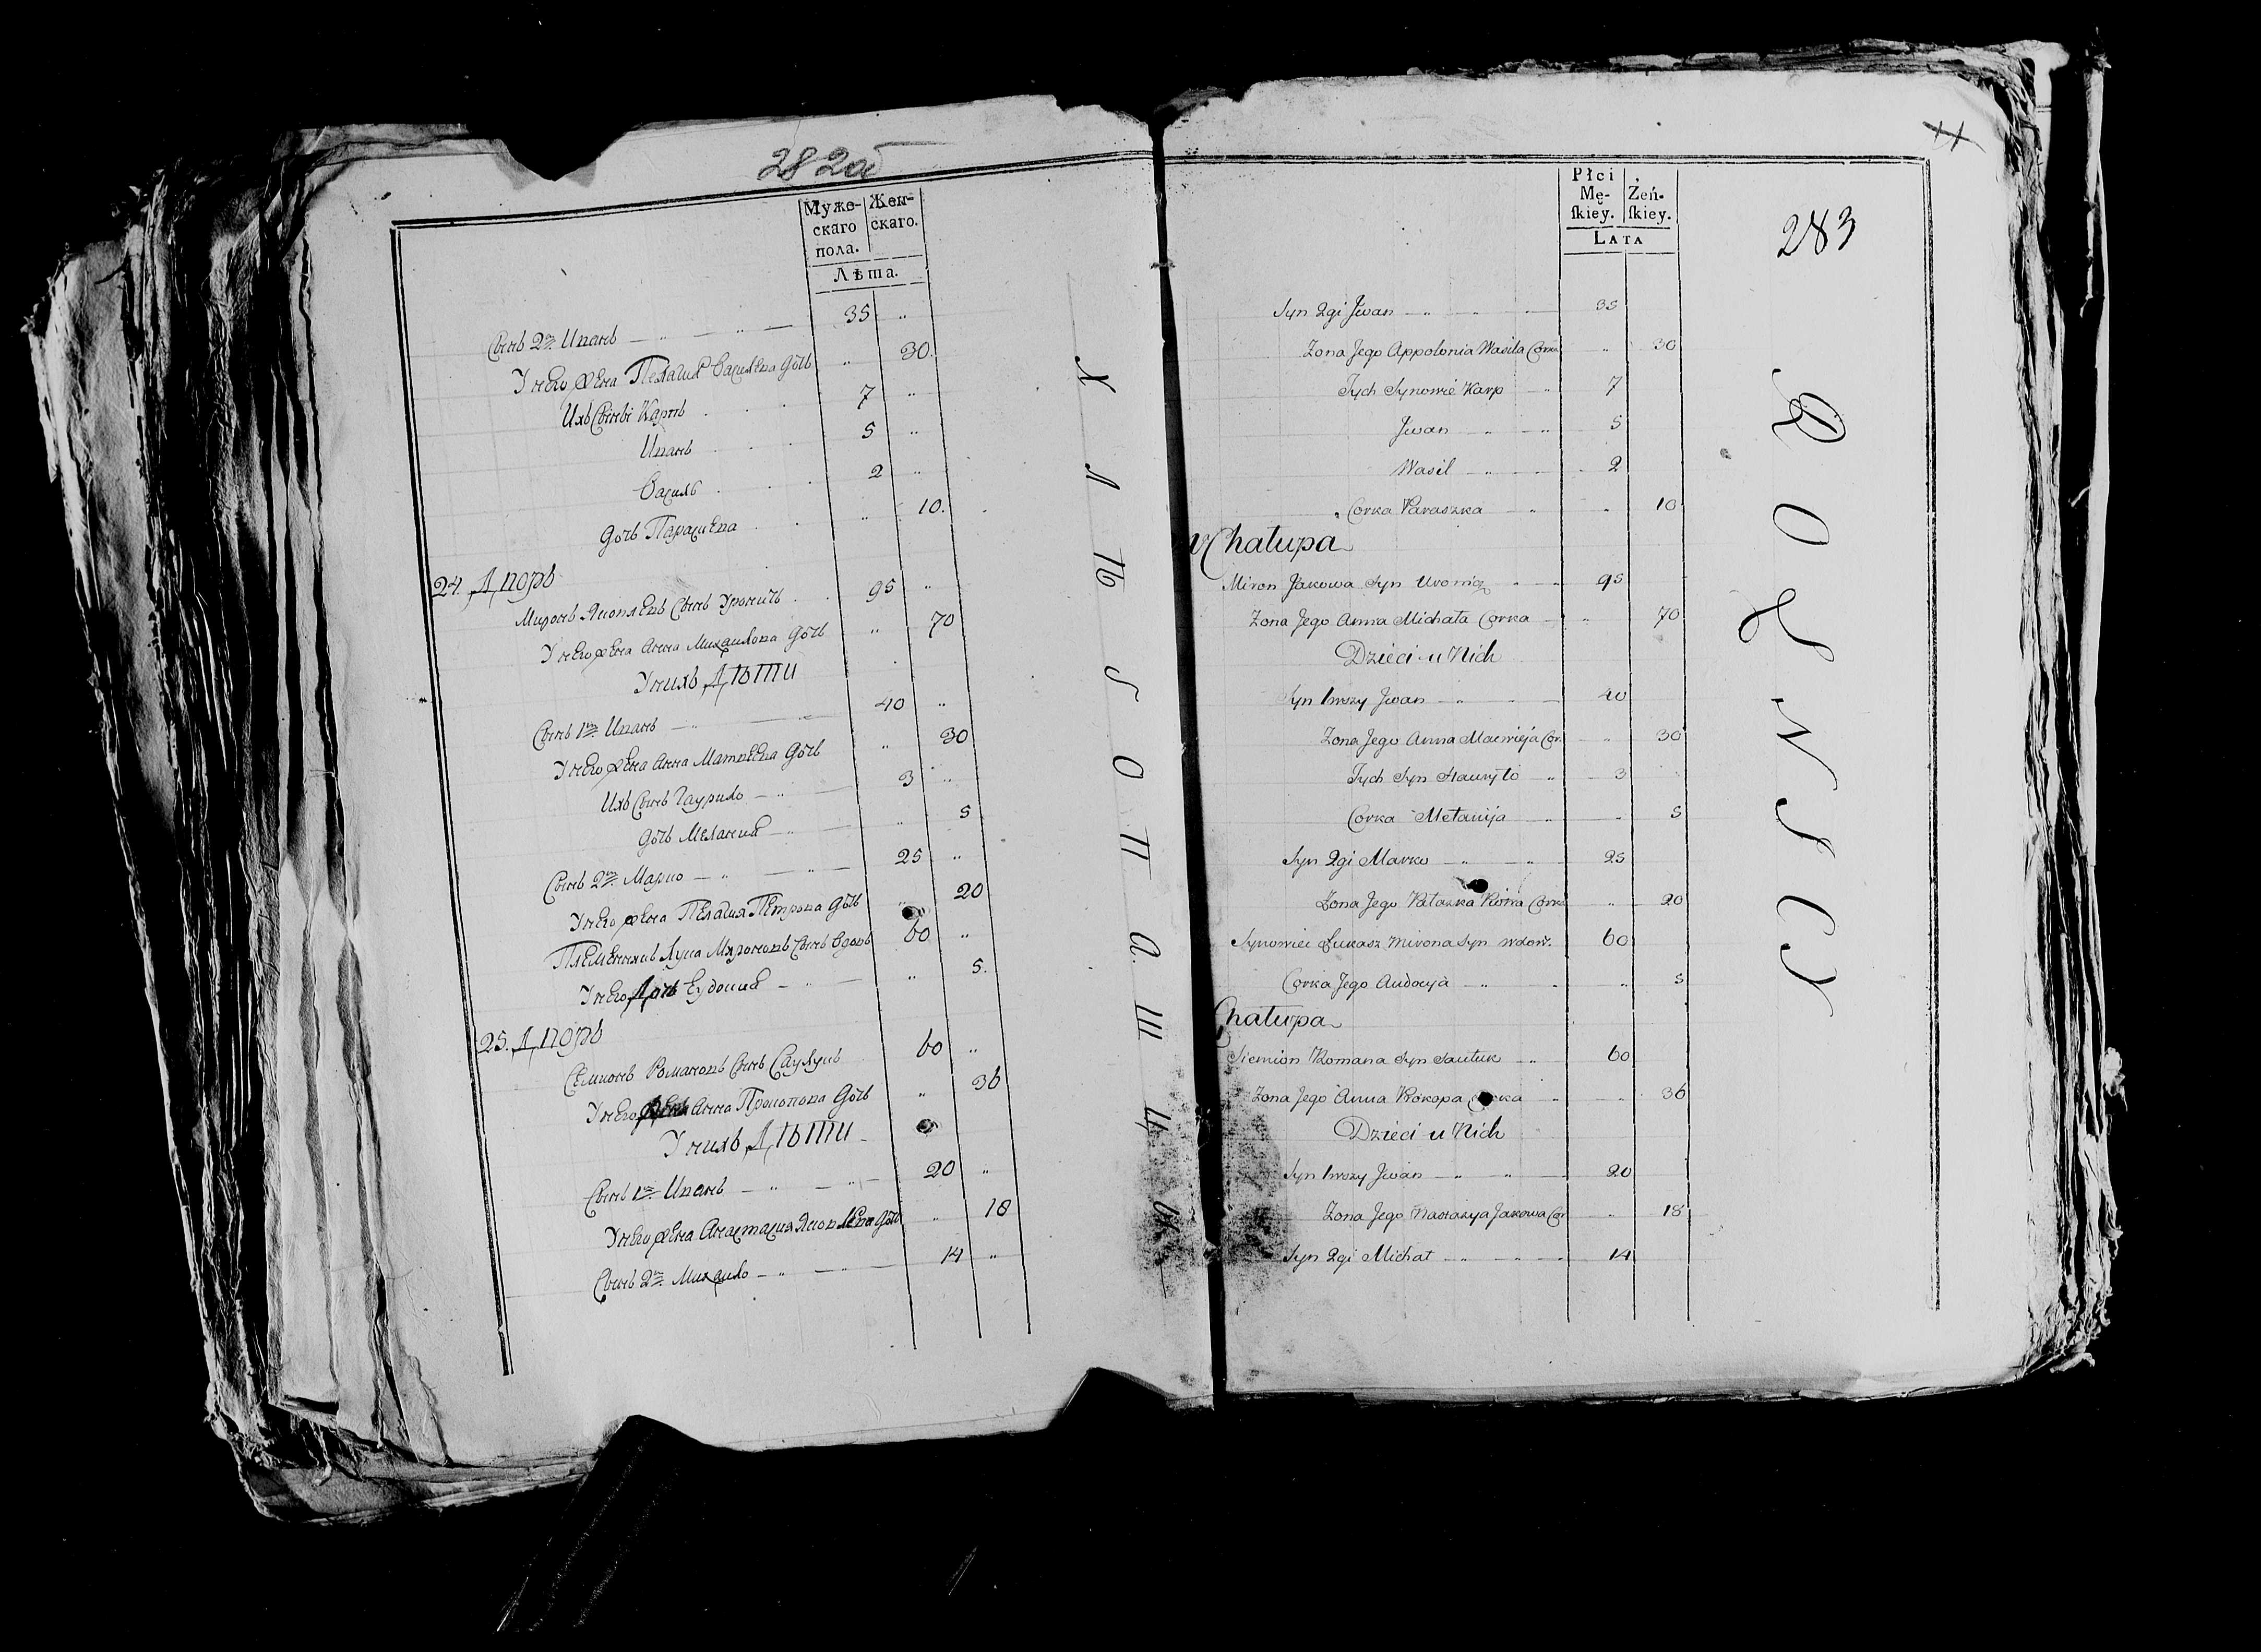 282об
Муже-
скаго
пола.
Жен-
скаго.
Лѣта.
Сынъ 2й Иванъ 35 "
У него жена Пелагия Василева дочь " 30.
Ихъ Сыны Карпъ 7 "
Иванъ 5 "
Василь 2 "
дочь Парасцева " 10.
24. Дворъ
Миронъ Яковлевъ Сынъ Уроничъ 95 "
У него жена Анна Михаилова дочь " 70
У нихъ Дѣти
Сынъ 1й Иванъ 40 "
У него жена Анна Матвеева дочь " 30
Ихъ Сынъ Гаурило 3 "
дочь Мелания " 5
Сынъ 2й Марко 25 "
У него жена Пелагия Петрова дочь " 20
Племенникъ Лука Миромовъ Сынъ вдовъ 60 "
У него Дочь Еудокия " 5.
25. Дворъ
Семионъ Романовъ Сынъ Саулукъ 60 "
У него жена Анна Прокопова дочь " 36
У нихъ Дѣти
Сынъ 1й Иванъ 20 "
У него жена Анастасия Яковлева дочь " 18
Сынъ 2й Михаило 14 "
Хлѣбопашцы
11
Płci
Mę-
ſkiey.
Żeń-
ſkiey.
LATA
283
Syn 2gi Jwan 35
Zona Jego Appolonia Wasila Corka " 30
Tych Synowie Karp 7
Jwan 5
Wasil 2
Corka Paraszka " 10
Chałupa
Miron Jakowa Syn Uronicz 95
Zona Jego Anna Michała Corka " 70
Dzieci u Nich
Syn 1wszy Jwan 40
Zona Jego Anna Macwieja Cor. " 30
Tych Syn Hauryło 3
Corka Mełanija " 5
Syn 2gi Marko 25
Zona Jego Pałazka Piotra Corka " 20
Synowiec Łukasz Mirona Syn wdow. 60
Corka Jego Audocya " 5
Chałupa
Siemion Romana Syn Sauluk 60
Zona Jego Anna Prokopa Corka " 36
Dzieci u Nich
Syn 1wszy Jwan 20
Zona Jego Nastazya Jakowa Cor " 18
Syn 2gi Michał 14
ROLNICY